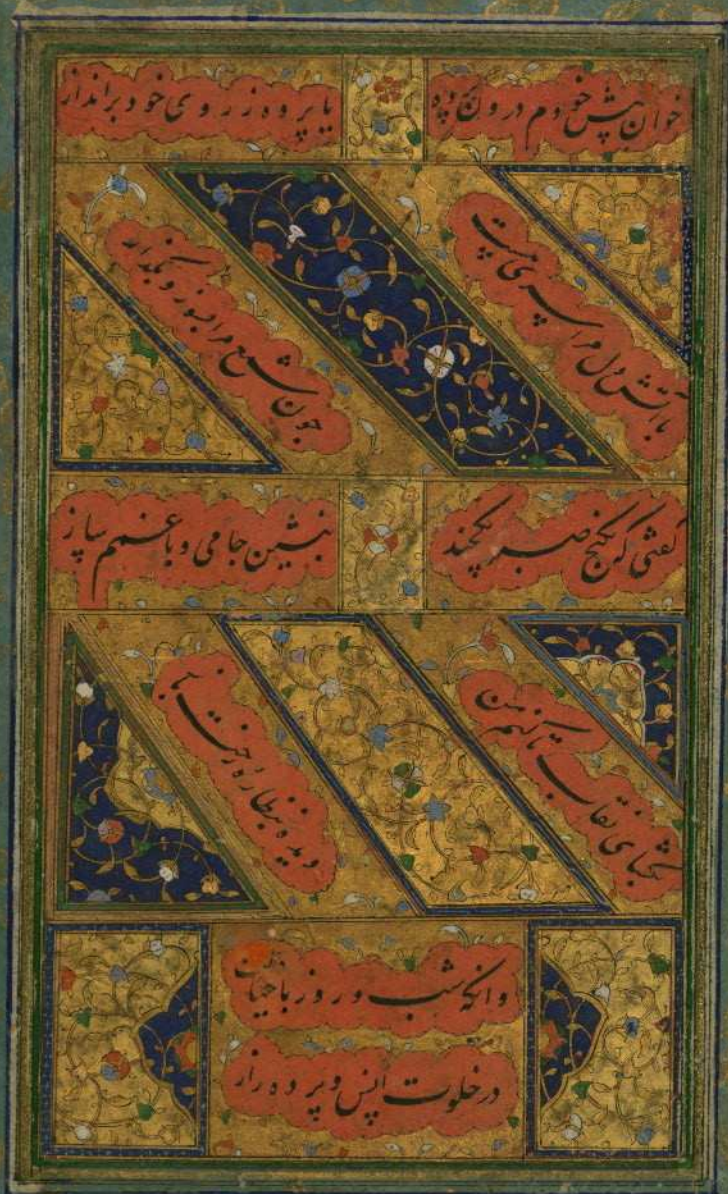 خوان پیش خودم درون پرده
یا پرده ز روی خود برانداز
با آتش دل مرا سری هست
چون شمع مرا بسوز و بگداز
گفتی که بکنج صبر یکچند
بنشین جامی و با غمم ساز
بگشای نقاب تا کنم من
دیده بنظاره رخت باز
وانکه شب و روز با خیالت
در خلوت انس و پرده راز